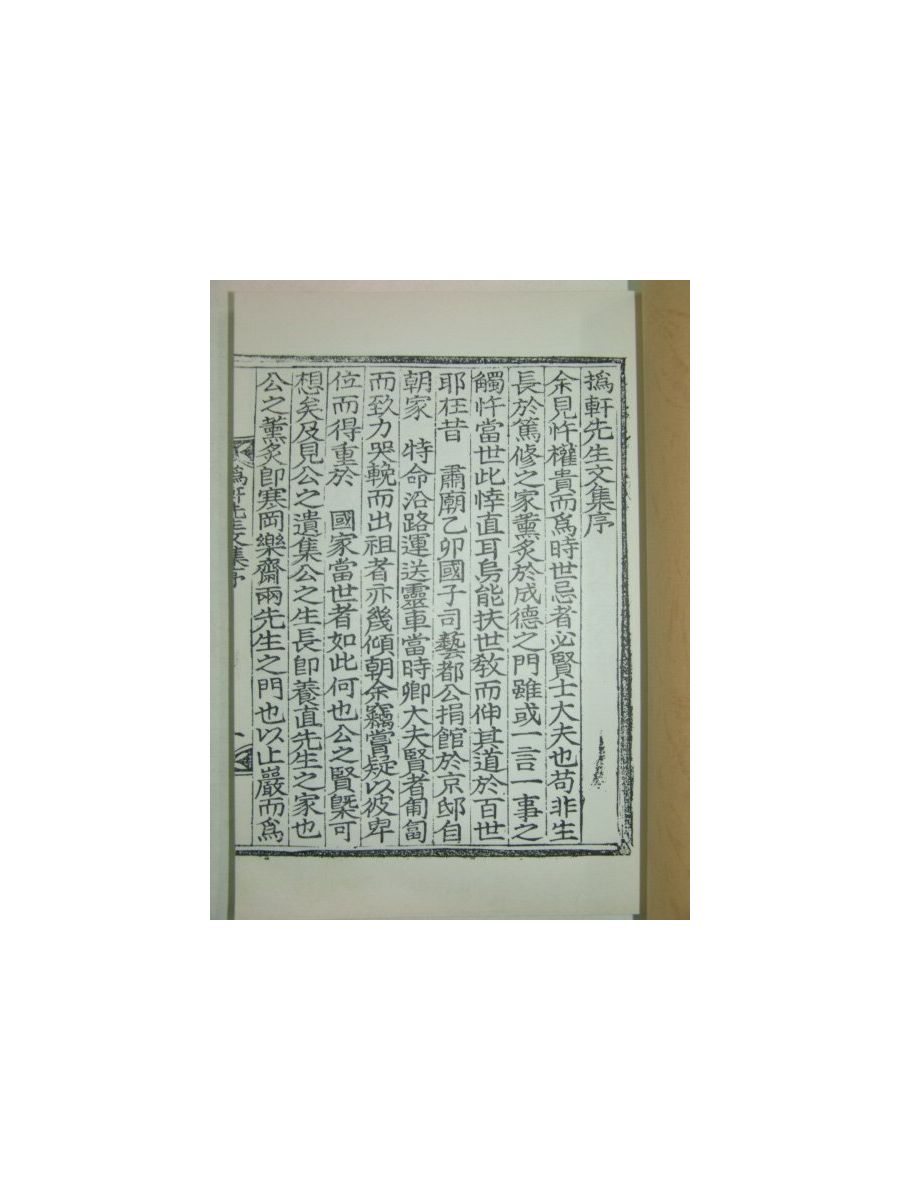 撝軒先生文集序
余見忤權貴而爲時世忌者必賢士大夫也苟非生
長於篤修之家薰炙於成德之門雖或一言一事之
觸忤當世此悻直耳烏能扶世敎而伸其道於百世
耶在昔 肅廟乙卯國子司藝都公捐館於京邸自
朝家 特命沿路運送靈車當時卿大夫賢者匍匐
而致力哭輓而出祖者亦幾傾朝余竊嘗疑以彼卑
位而得重於 國家當世者如此何也公之賢槩可
想矣及見公之遺集公之生長卽養直先生之家也
公之薰炙卽寒岡樂齋兩先生之門也以止巖而爲
撝軒先生文集序